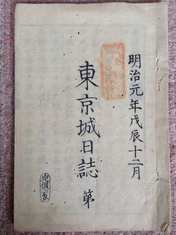 明治元年戊辰十二月
東京城日誌 第